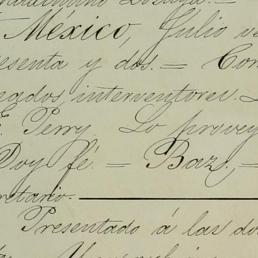 Mexico, Julio ve
esenta y dos. — Con
egados, interventores. L
E. Perry. Lo provey
Doy fé. — Baz, —
retario.
Presentado á las do